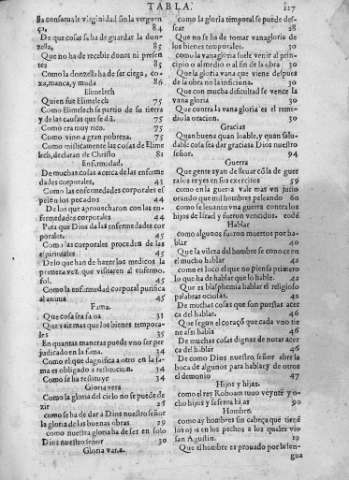 TABLA.
127
sa consamale virginidad sin la verguen
ça 84
De que cosas se ha de guardar la don
zella, 85
Que no ha de recibir donzella ni presen
tes 85
Como la donzella ha de ser ciega, co-
xa, manca, y muda 86
Elimelech
Quien fue Elimelech 75
Como Elimelech se partio de su tierra
y de las causas que se dã. 75
Como era muy rico. 75
Como vino a gran pobreza. 75
Como misticamente las cosas de Elime
lech, declaran de Christo 81
Enfermedad.
De muchas cosas acerca de las enferme
dades corporales, 43
Como las enfermedades corporales el
pelen los pecados 44
De los que aprouecharon con las en-
fermedades corporales 44
Para que Dios da las enfermedades cor
porales. 44
Como las corporales proceden de las
espirituales. 45
De lo que han de hazer los medicos la
primera vez que visitaren al enfermo.
fol. 45
Como la enfermedad corporal purifica
al anima 45
Fama.
Que cosa sea fama 31
Que vale mas que los bienes tempora-
les 35
En quantas maneras puede vno ser per
judicado en la fama. 34
Como el que dagnifica a otro en la fa-
ma es obligado a restitucion. 34
Como se ha restituye 34
Gloria vera
Como la gloria del cielo no se puede de
zir 26
como se ha de dar a Dios nuestro señor
la gloria de las buenas obras 29
como nuestra gloria ha de ser en solo
Dios nuestro señor 30
Gloria vana.
como la gloria temporal se puede des-
sear 28
Que no se ha de tomar vanagloria de
los bienes temporales. 30
como la vanagloria suele venir al prin-
cipio o al medio o al fin de la obra 30
Que la gloria vana que viene despues
de la obra no la inficiona. 30
Que con mucha dificultad se vence la
vana gloria 30
Que contra la vana gloria es el reme-
dio la oracion. 30
Gracias
Quan buena quan loable, y quan salu-
dable cosa sea dar gracias a Dios nuestro
señor. 94
Guerra
Que gente ayan de lleuar cõsi de guer
ra los reyes en sus exercitos 59
como en la guerra vale mas vn justo
orando que mil hombres peleando 60
como se leuanto vna guerra contra los
hijos de Israel y fueron vencidos. eodé
Hablar
como algunos fueron muertos por ha-
blar 40
Que la vileza del hombre se conoce en
el mucho hablar 41
como es loco el que no piensa primero
lo que ha de hablar que lo hable. 42
Que es blasphemia hablar el religioso
palabras ociosas. 41
De muchas cosas que son puestas acer
ca del hablar. 46
Que segun el coraçõ que cada vno tie
ne assi habla 46
De muchas cosas dignas de notar acer
ca del hablar 46
De como Dios nuestro señor abre la
boca de algunos para hablar y de otros
el demonio 47
Hijos y hijas.
como el rey Roboan tuuo veynte y o-
cho hijos y sesenta hijas 90
Hombre
como ay hombres sin cabeça que tiené
los ojos en los pechos a los quales vio
san Agustin. 19
Que el hombre es prouado por la len-
gua